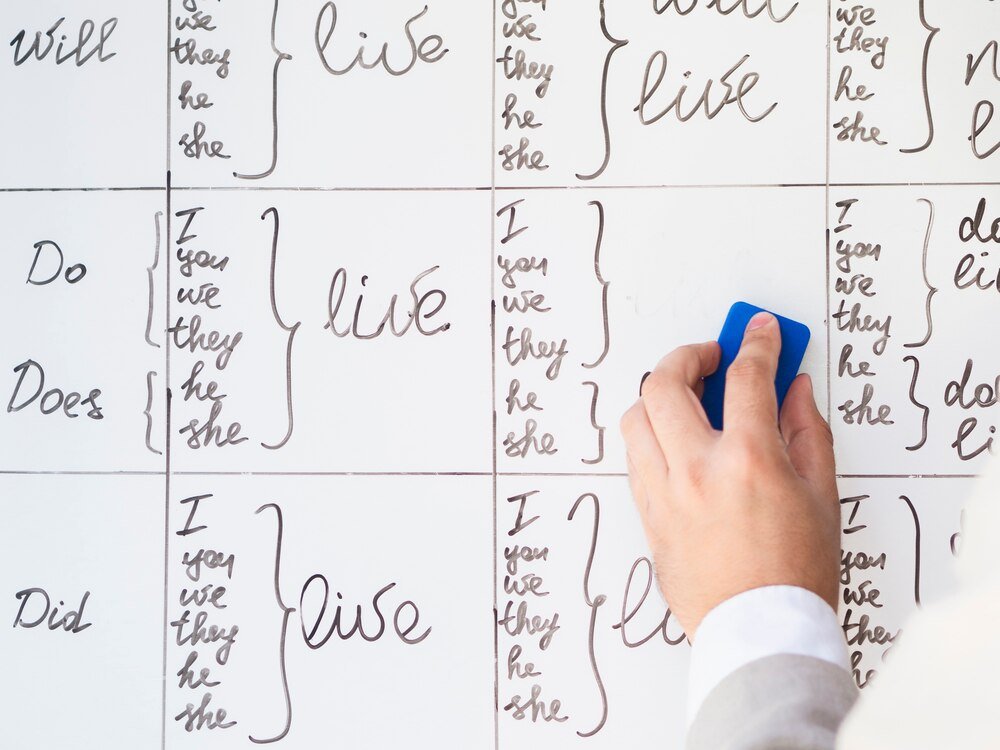 Will
we
they
he
she
live
we
they
he
she
will
live
we
they
he
she
Do
Does
I
you
we
they
he
she
live
I
you
we
they
he
she
I
you
we
they
he
she
Did
I
you
we
they
he
she
live
I
you
we
they
he
she
I
you
we
they
he